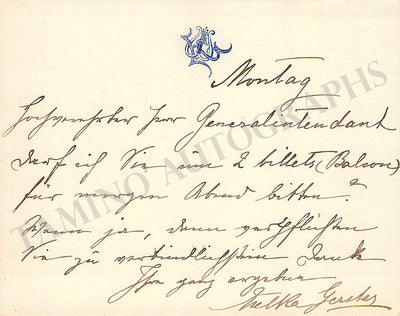 Montag
Hochverehrter Herr Generalintendant
darf ich Sie um 2 billets (Balcon)
für morgen Abend bitten?
Wenn ja, dann verpflichten
Sie zu verbindlichstem Danke
Ihre ganz ergebene
Etelka Gerster
TAMINO AUTOGRAPHS